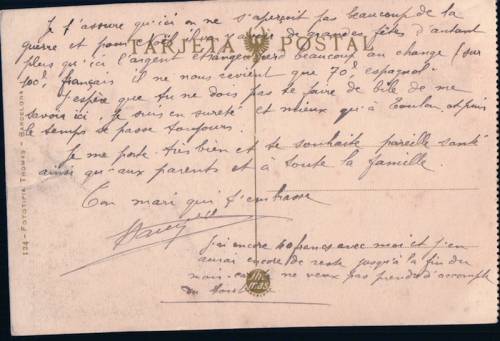 Je t'assure qu'ici on ne s'aperçoit pas beaucoup de la
guerre et pour Noël il y a de grandes fêtes d'autant
TARJETA POSTAL
plus qu'ici l'argent étranger perd beaucoup au change (sur
100f français il ne nous revient que 70f espagnol
J'espère que tu ne dois pas te faire de bile de me
savoir ici, je suis en sureté et mieux qu'à Toulon, et puis
le temps se passe toujours.
Je me porte très bien et te souhaite pareille santé
ainsi qu'aux parents et à toute la famille
Ton mari qui t'embrasse
J'ai encore 60 francs avec moi et j'en
aurai encore de reste jusqu'à la fin du
mois car ne veux pas prendre d'accompte
THO
MAS
134 - FOTOTIPIA THOMAS - BARCELONA